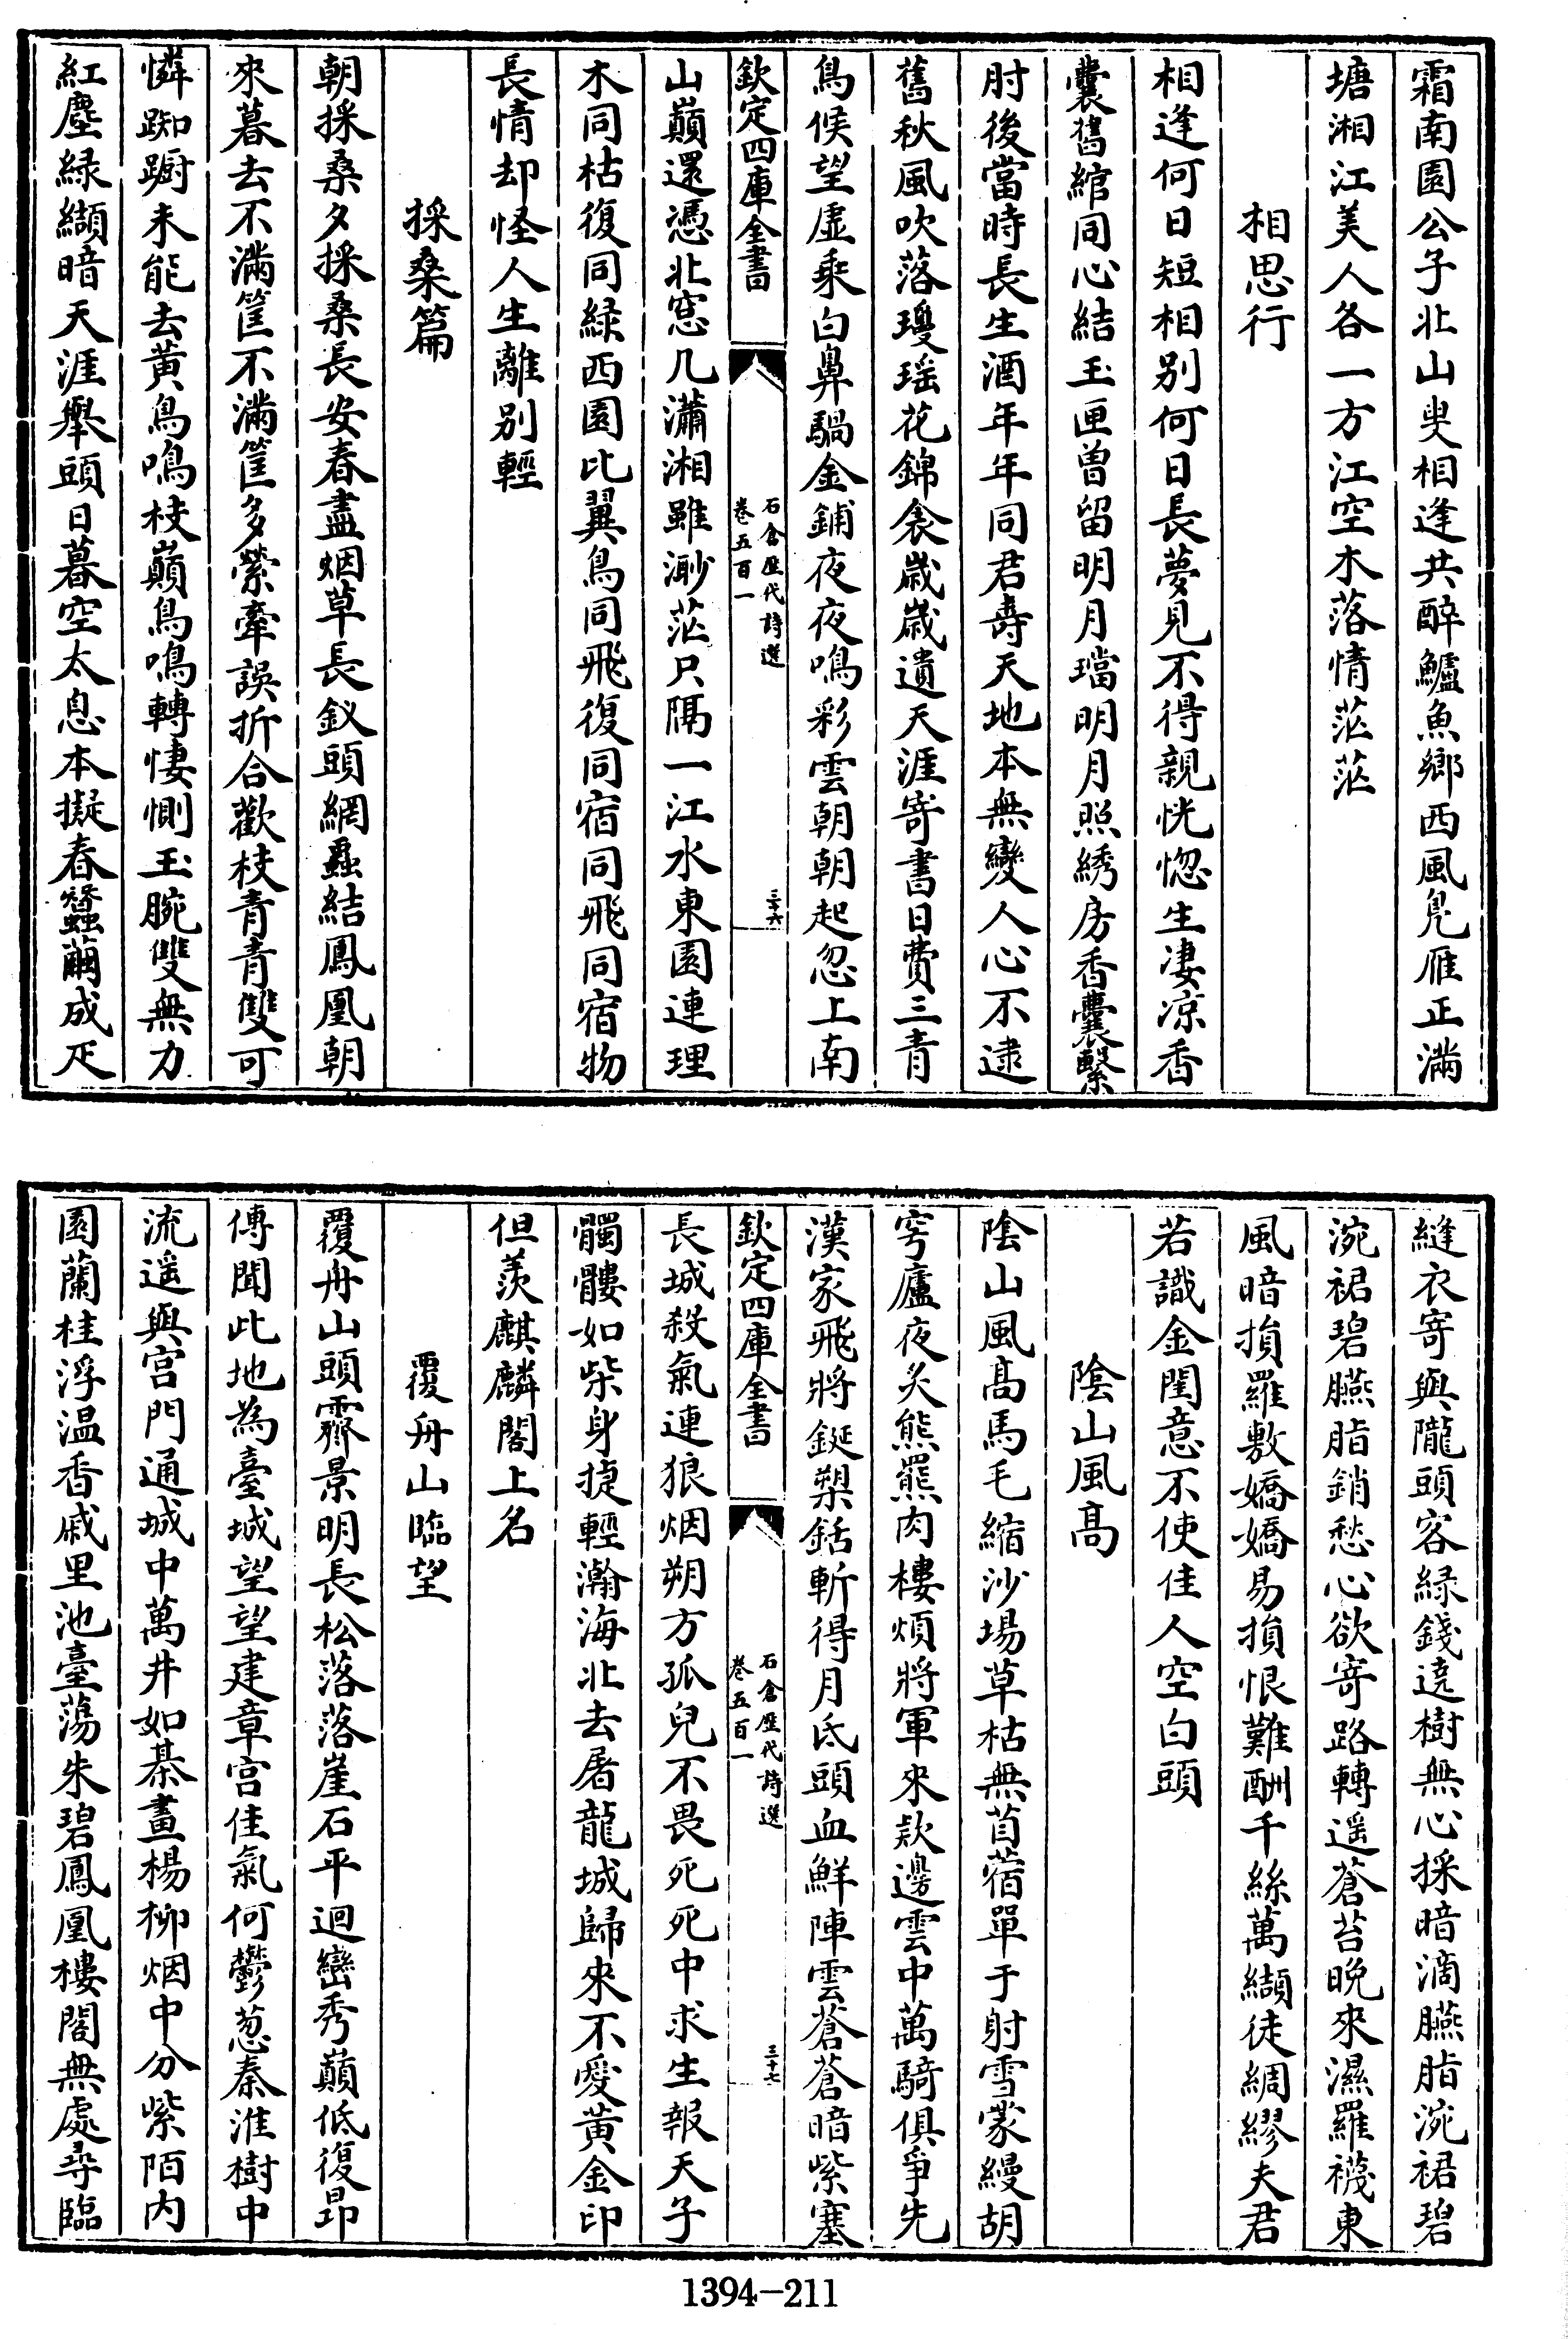 霜南園公子北山叟相逢共醉鱸魚鄉西風鳬雁正滿
塘湘江美人各一方江空木落情茫茫
相思行
相逢何日短相別何日長夢見不得親恍惚生凄凉香
囊舊綰同心結玉匣曾留明月璫明月照綉房香囊繫
肘後當時長生酒年年同君壽天地本無變人心不逮
舊秋風吹落瓊瑶花錦衾歲歲遺天涯寄書日費三青
鳥候望虛乘白鼻騧金鋪夜夜鳴彩雲朝朝起忽上南
欽定四庫全書
石倉歷代詩選
卷五百一
三十六
山巔還憑北窓几瀟湘雖渺茫只隔一江水東園連理
木同枯復同緑西園比翼鳥同飛復同宿同飛同宿物
長情却怪人生離別輕
採桑篇
朝採桑夕採桑長安春盡烟草長釵頭網蝨結鳳凰朝
來暮去不滿筐不滿筐多縈牽誤折合歡枝青青雙可
憐踟躕未能去黄鳥鳴枝巔鳥鳴轉悽惻玉腕雙無力
紅塵緑纈暗天涯舉頭日暮空太息本擬春蠶繭成疋
縫衣寄與隴頭客緑錢遶樹無心採暗滴臙脂涴裙碧
涴裙碧臙脂銷愁心欲寄路轉遥蒼苔晩來濕羅襪東
風暗損羅敷嬌嬌易損恨難酬千絲萬纈徒綢繆夫君
若識金閨意不使佳人空白頭
陰山風髙
陰山風髙馬毛縮沙場草枯無苜蓿單于射雪蒙縵胡
穹廬夜炙熊羆肉樓煩將軍來欵邊雲中萬騎俱爭先
漢家飛將鋋槊銛斬得月氐頭血鮮陣雲蒼蒼暗紫塞
欽定四庫全書
石倉歷代詩選
卷五百一
三十七
長城殺氣連狼烟朔方孤兒不畏死死中求生報天子
髑髏如柴身捷輕瀚海北去屠龍城歸來不愛黄金印
但羨麒麟閣上名
覆舟山臨望
覆舟山頭霽景明長松落落崖石平迴巒秀巔低復昂
傳聞此地為臺城望望建章宫佳氣何鬱葱秦淮樹中
流遥與宫門通城中萬井如棊畫楊柳烟中分紫陌内
園蘭桂浮温香戚里池臺蕩朱碧鳳凰樓閣無處尋臨
1394—211